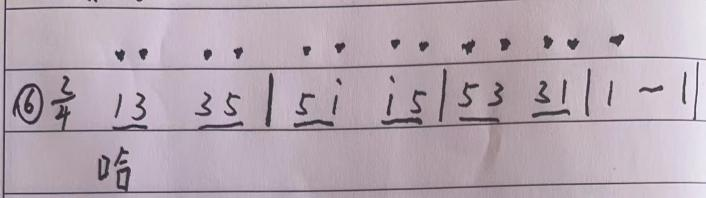 ⑥ 2/4 13 35 | 5i i5 | 53 31 | 1 - 1 |
哈